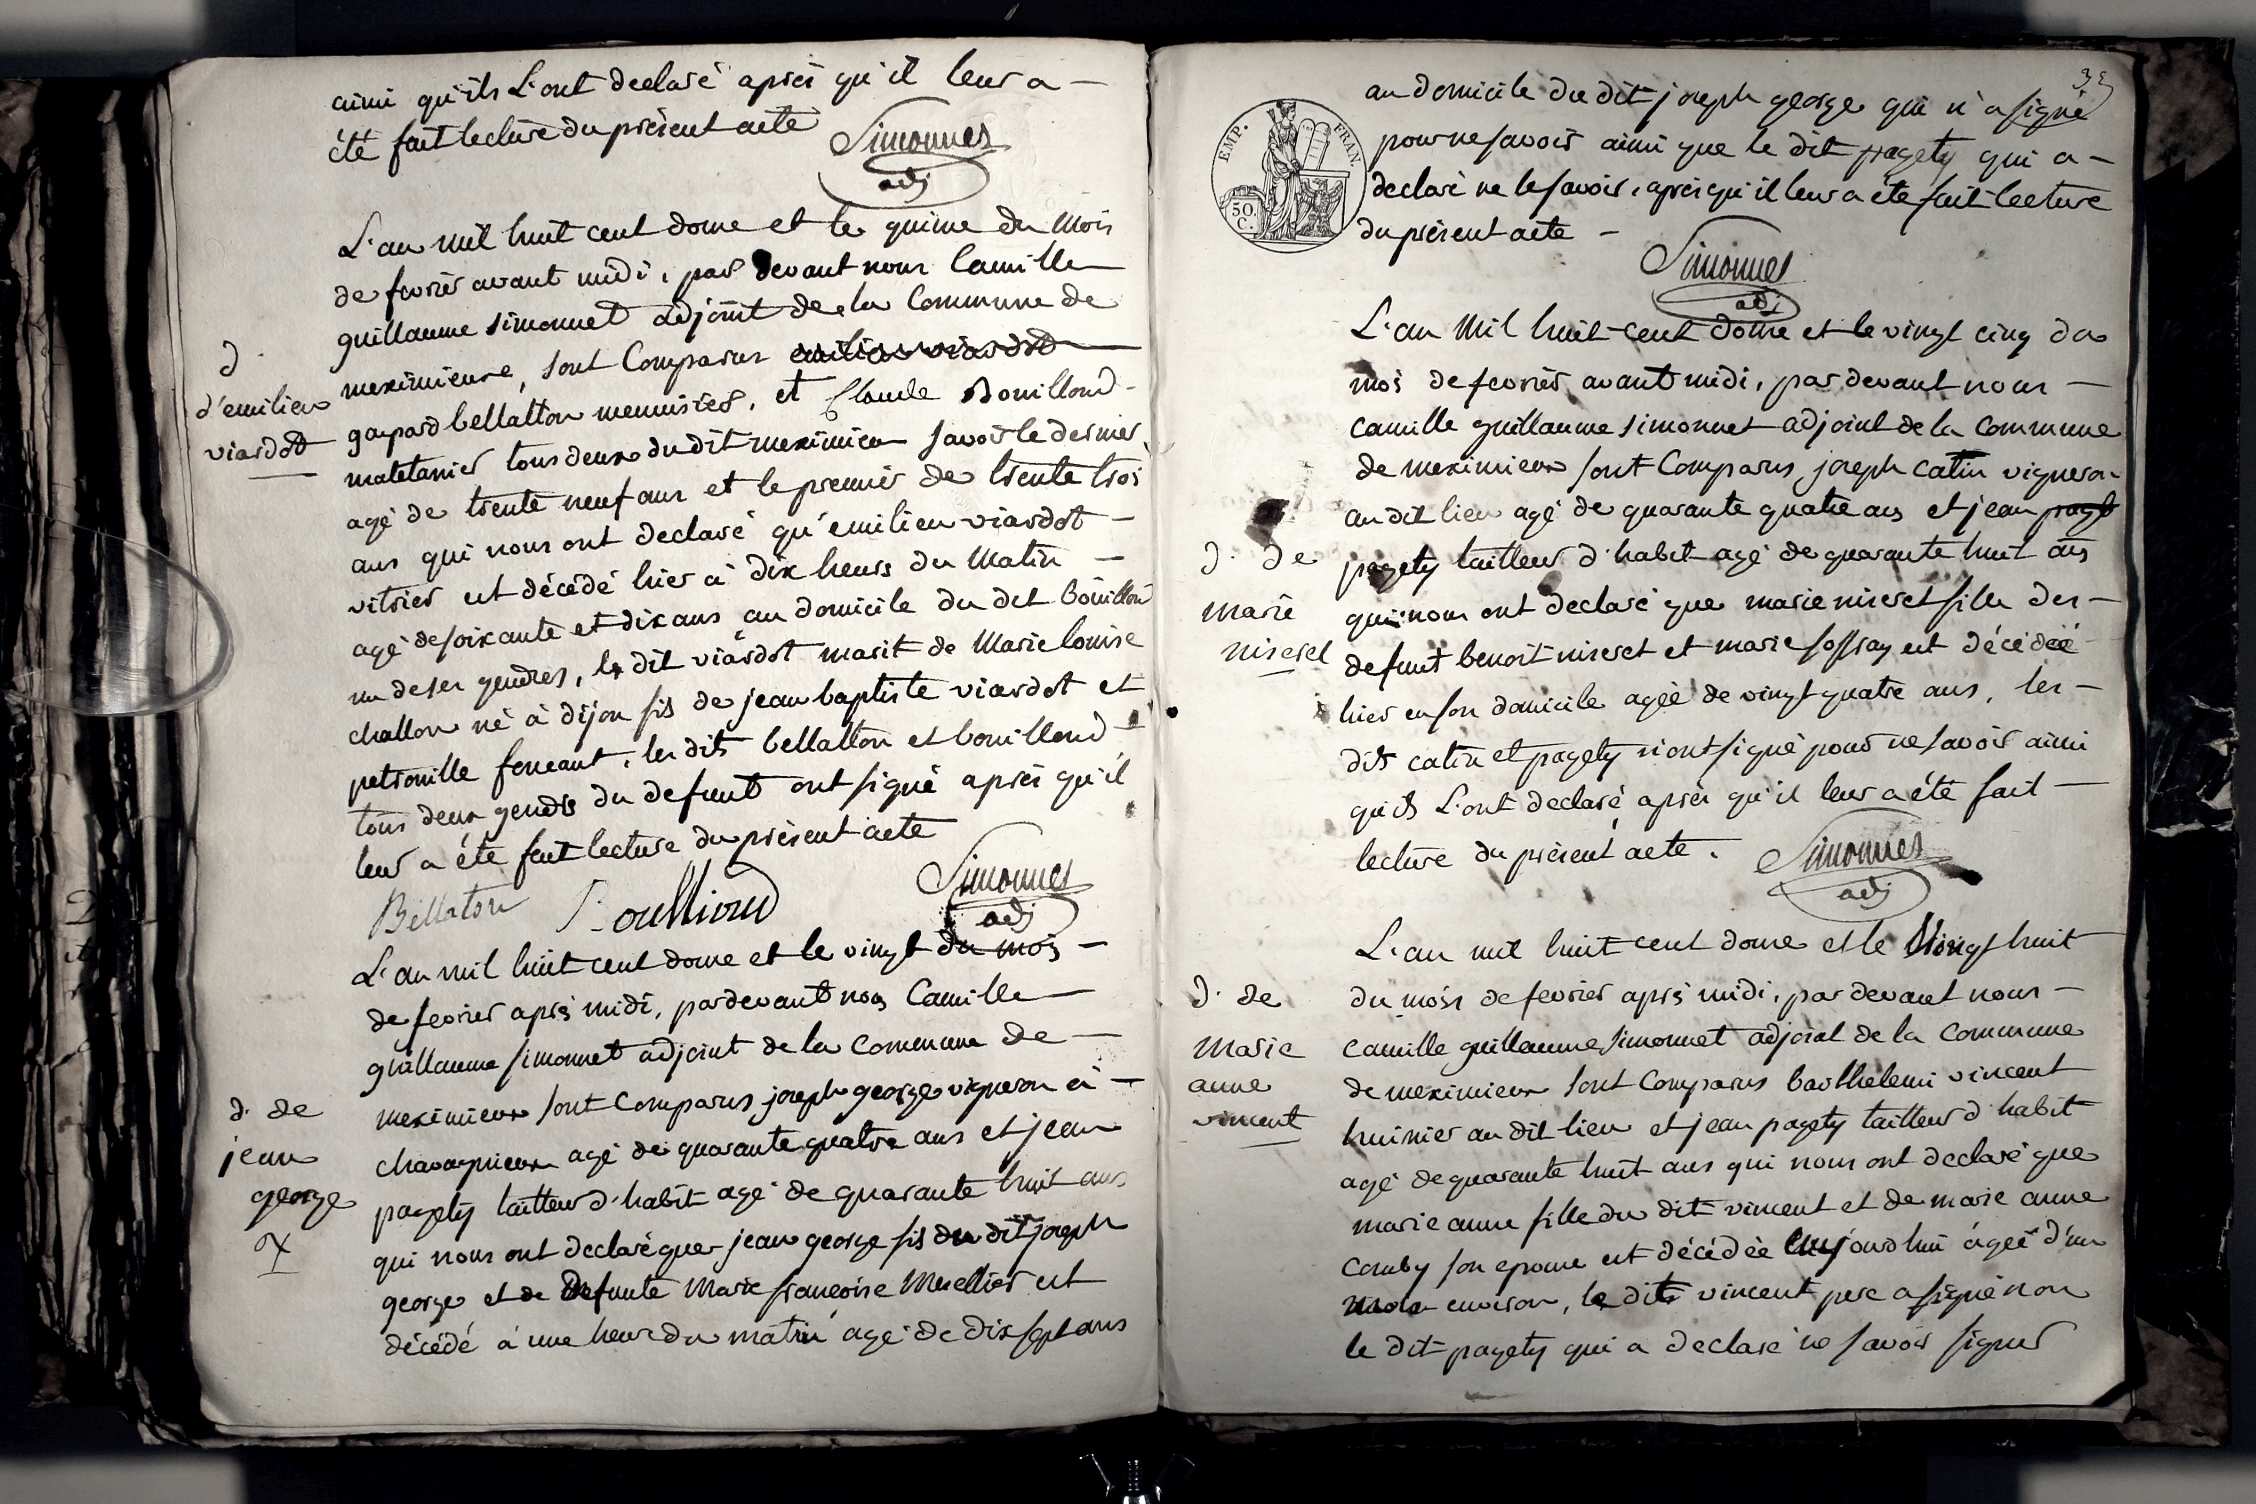 ainsi qu'ils L'ont declaré après qu'il leur a
été fait lecture du présent acte
Simonnet
adj
L'an mil huit cent douze et le quinze du mois
de fevrier avant midi, par devant nous Camille
guillaume simonnet adjoint de la Commune de
meximieux, sont Comparus emilien viardot
gaspard bellatton menuisier, et Claude Bouilloud
matelassier tous deux du dit meximieux savoir le dernier
agé de trente neuf ans et le premier de trente trois
ans qui nous ont declaré qu'emilien viardot
vitrier est décédé hier à dix heures du matin
agé de soixante et dix ans au domicile du dit bouilloud
un de ses gendres, le dit viardot marit de Marie louise
challon né à dijon fils de jean baptiste viardot et
petronille foucaut, les dits bellatton et bouilloud
tous deux gendre du defunt ont signé après qu'il
leur a été fait lecture du présent acte
Bellaton Boullioud Simonnet
adj
L'an mil huit cent douze et le vingt du mois
de fevrier après midi, par devant nous Camille
guillaume simonnet adjoint de la commune de
meximieux sont comparus joseph george vigneron à
chavagnieux agé de quarante quatre ans et jean
pagety tailleur d'habit agé de quarante huit ans
qui nous ont declaré que jean george fils du dit joseph
george et de defunte Marie françoise Muellier est
décédé à une heure du matin agé de dix sept ans
d.
d'emilien
viardot
d. de
jean
george
X
35
au domicile du dit joseph george qui n'a signé
pour ne savoir ainsi que le dit pagety qui a
declaré ne le savoir, après qu'il leur a été fait lecture
du présent acte
Simonnet
adj
EMP. FRAN.
50. C.
L'an mil huit cent douze et le vingt cinq du
mois de fevrier avant midi, par devant nous
camille guillaume simonnet adjoint de la commune
de meximieux sont Comparus joseph catin vigneron
au dit lieu agé de quarante quatre ans et jean pagt
pagety tailleur d'habit agé de quarante huit ans
qui nous ont declaré que marie niseret fille des
defunt benoit niseret et marie soffray est décédée
hier en son domicile agée de vingt quatre ans, les
dits catin et pagety n'ont signé pour ne savoir ainsi
qu'ils L'ont declaré après qu'il leur a été fait
lecture du présent acte.
Simonnet
adj
L'an mil huit cent douze et le vingt huit
du mois de fevrier après midi, par devant nous
camille guillaume simonnet adjoint de la commune
de meximieux sont Comparus barthelemi vincent
huinier au dit lieu et jean pagety tailleur d'habit
agé de quarante huit ans qui nous ont declaré que
marie anne fille du dit vincent et de marie anne
comby son epouse est décédée aujourd'hui agée d'un
mois environ, le dits vincent pere a signé non
le dit pagety qui a declaré ne savoir signer
d. de
marie
niseret
d. de
Marie
anne
vincent